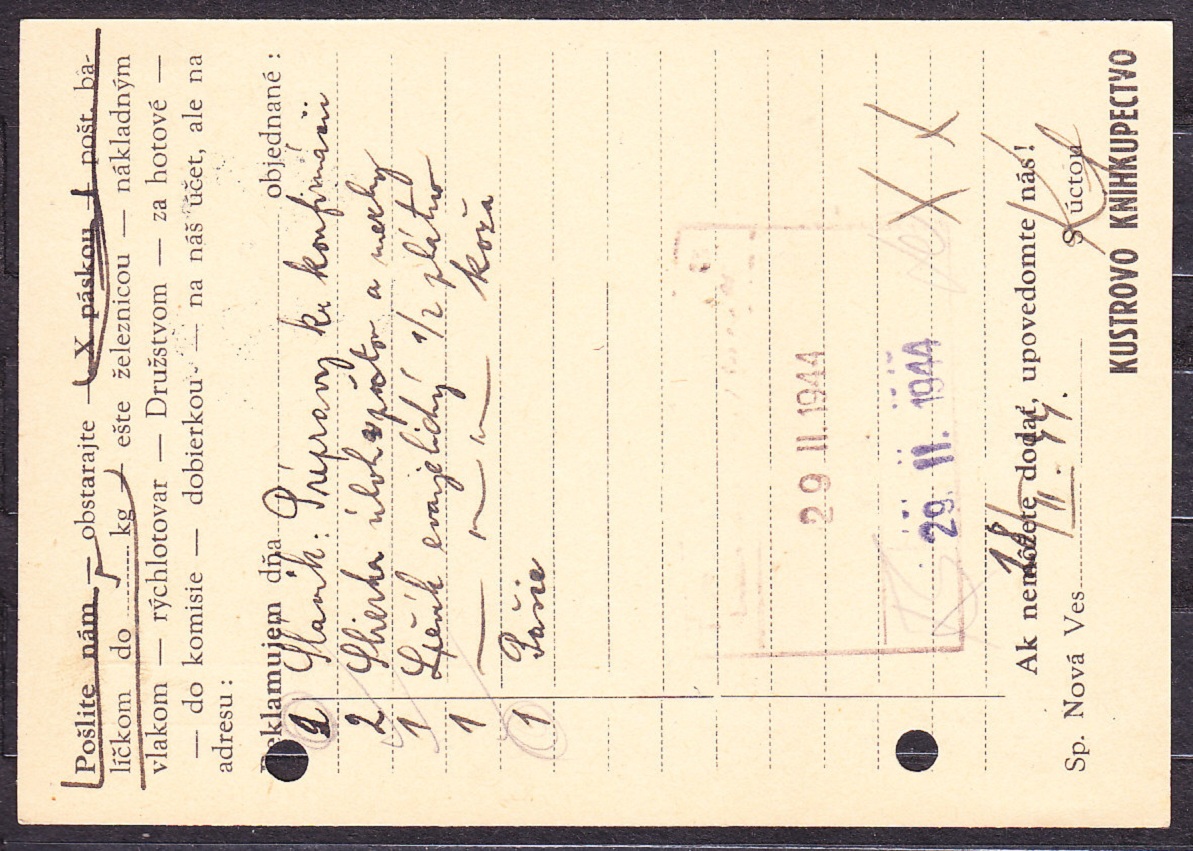 Pošlite nám — obstarajte — X páskou — pošt. ba-
líčkom do 5 kg — ešte železnicou — nákladným
vlakom — rýchlotovar — Družstvom — za hotové —
— do komisie — dobierkou — na náš účet, ale na
adresu:
Reklamujem dňa objednané:
2 Slávik: Prípravy ku konfirmácii
2 Zbierka úloh
1 Spevník evanjelický 1/2 plátno
1 — " — " — koža
1 Pašie
29 II. 1944
29. II. 1944
Ak nemôžete dodať, upovedomte nás!
Sp. Nová Ves 28/II. 44. S úctou
KUSTROVO KNIHKUPECTVO